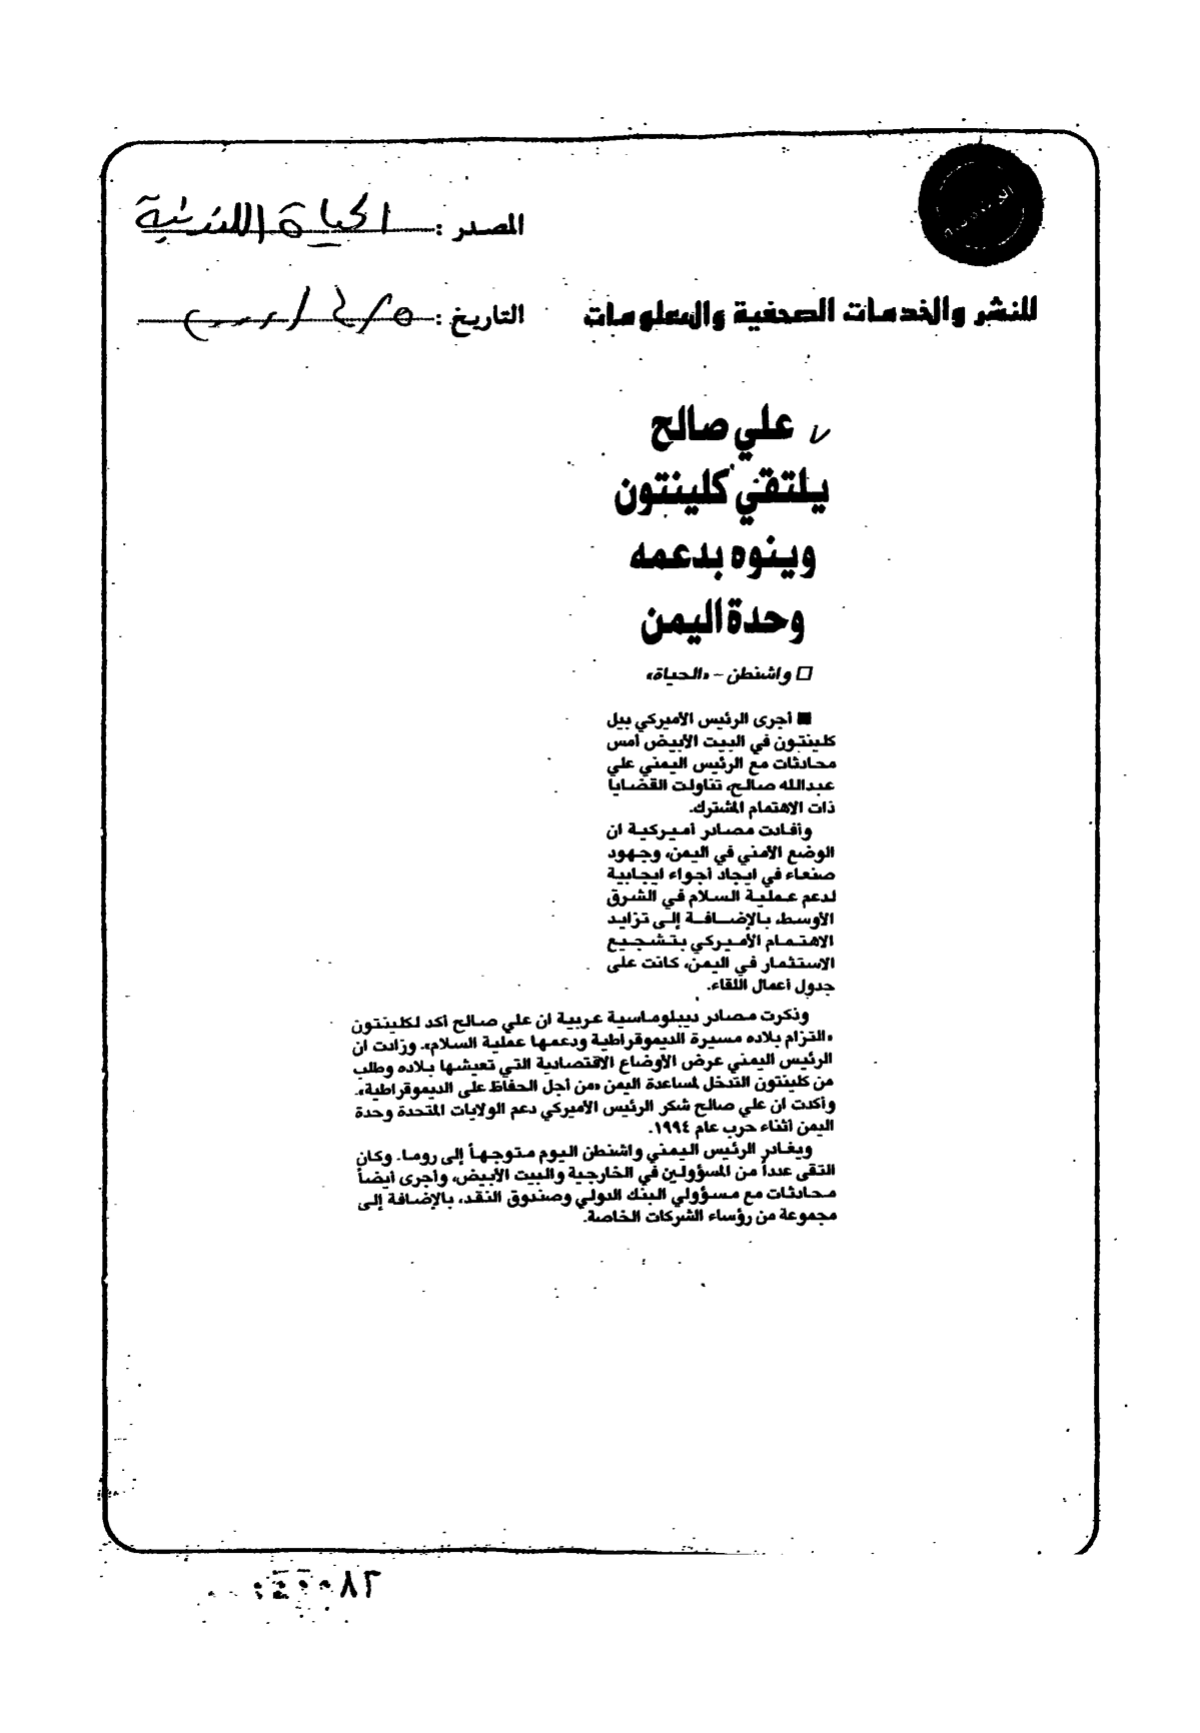 المصدر : الحياة اللندنية
للنشر والخدمات الصحفية والمعلومات
التاريخ : ٥/٤/٢٠٠٠
علي صالح
يلتقي كلينتون
وينوه بدعمه
وحدة اليمن
□ واشنطن - «الحياة»
■ أجرى الرئيس الأميركي بيل
كلينتون في البيت الأبيض أمس
محادثات مع الرئيس اليمني علي
عبدالله صالح، تناولت القضايا
ذات الاهتمام المشترك.
وأفادت مصادر أميركية ان
الوضع الأمني في اليمن، وجهود
صنعاء في ايجاد أجواء ايجابية
لدعم عملية السلام في الشرق
الأوسط، بالإضافة إلى تزايد
الاهتمام الأميركي بتشجيع
الاستثمار في اليمن، كانت على
جدول أعمال اللقاء.
وذكرت مصادر ديبلوماسية عربية ان علي صالح أكد لكلينتون
«التزام بلاده مسيرة الديموقراطية ودعمها عملية السلام». وزادت ان
الرئيس اليمني عرض الأوضاع الاقتصادية التي تعيشها بلاده وطلب
من كلينتون التدخل لمساعدة اليمن «من أجل الحفاظ على الديموقراطية».
وأكدت ان علي صالح شكر الرئيس الأميركي دعم الولايات المتحدة وحدة
اليمن أثناء حرب عام ١٩٩٤.
ويغادر الرئيس اليمني واشنطن اليوم متوجهاً إلى روما. وكان
التقى عدداً من المسؤولين في الخارجية والبيت الأبيض، وأجرى أيضاً
محادثات مع مسؤولي البنك الدولي وصندوق النقد، بالإضافة إلى
مجموعة من رؤساء الشركات الخاصة.